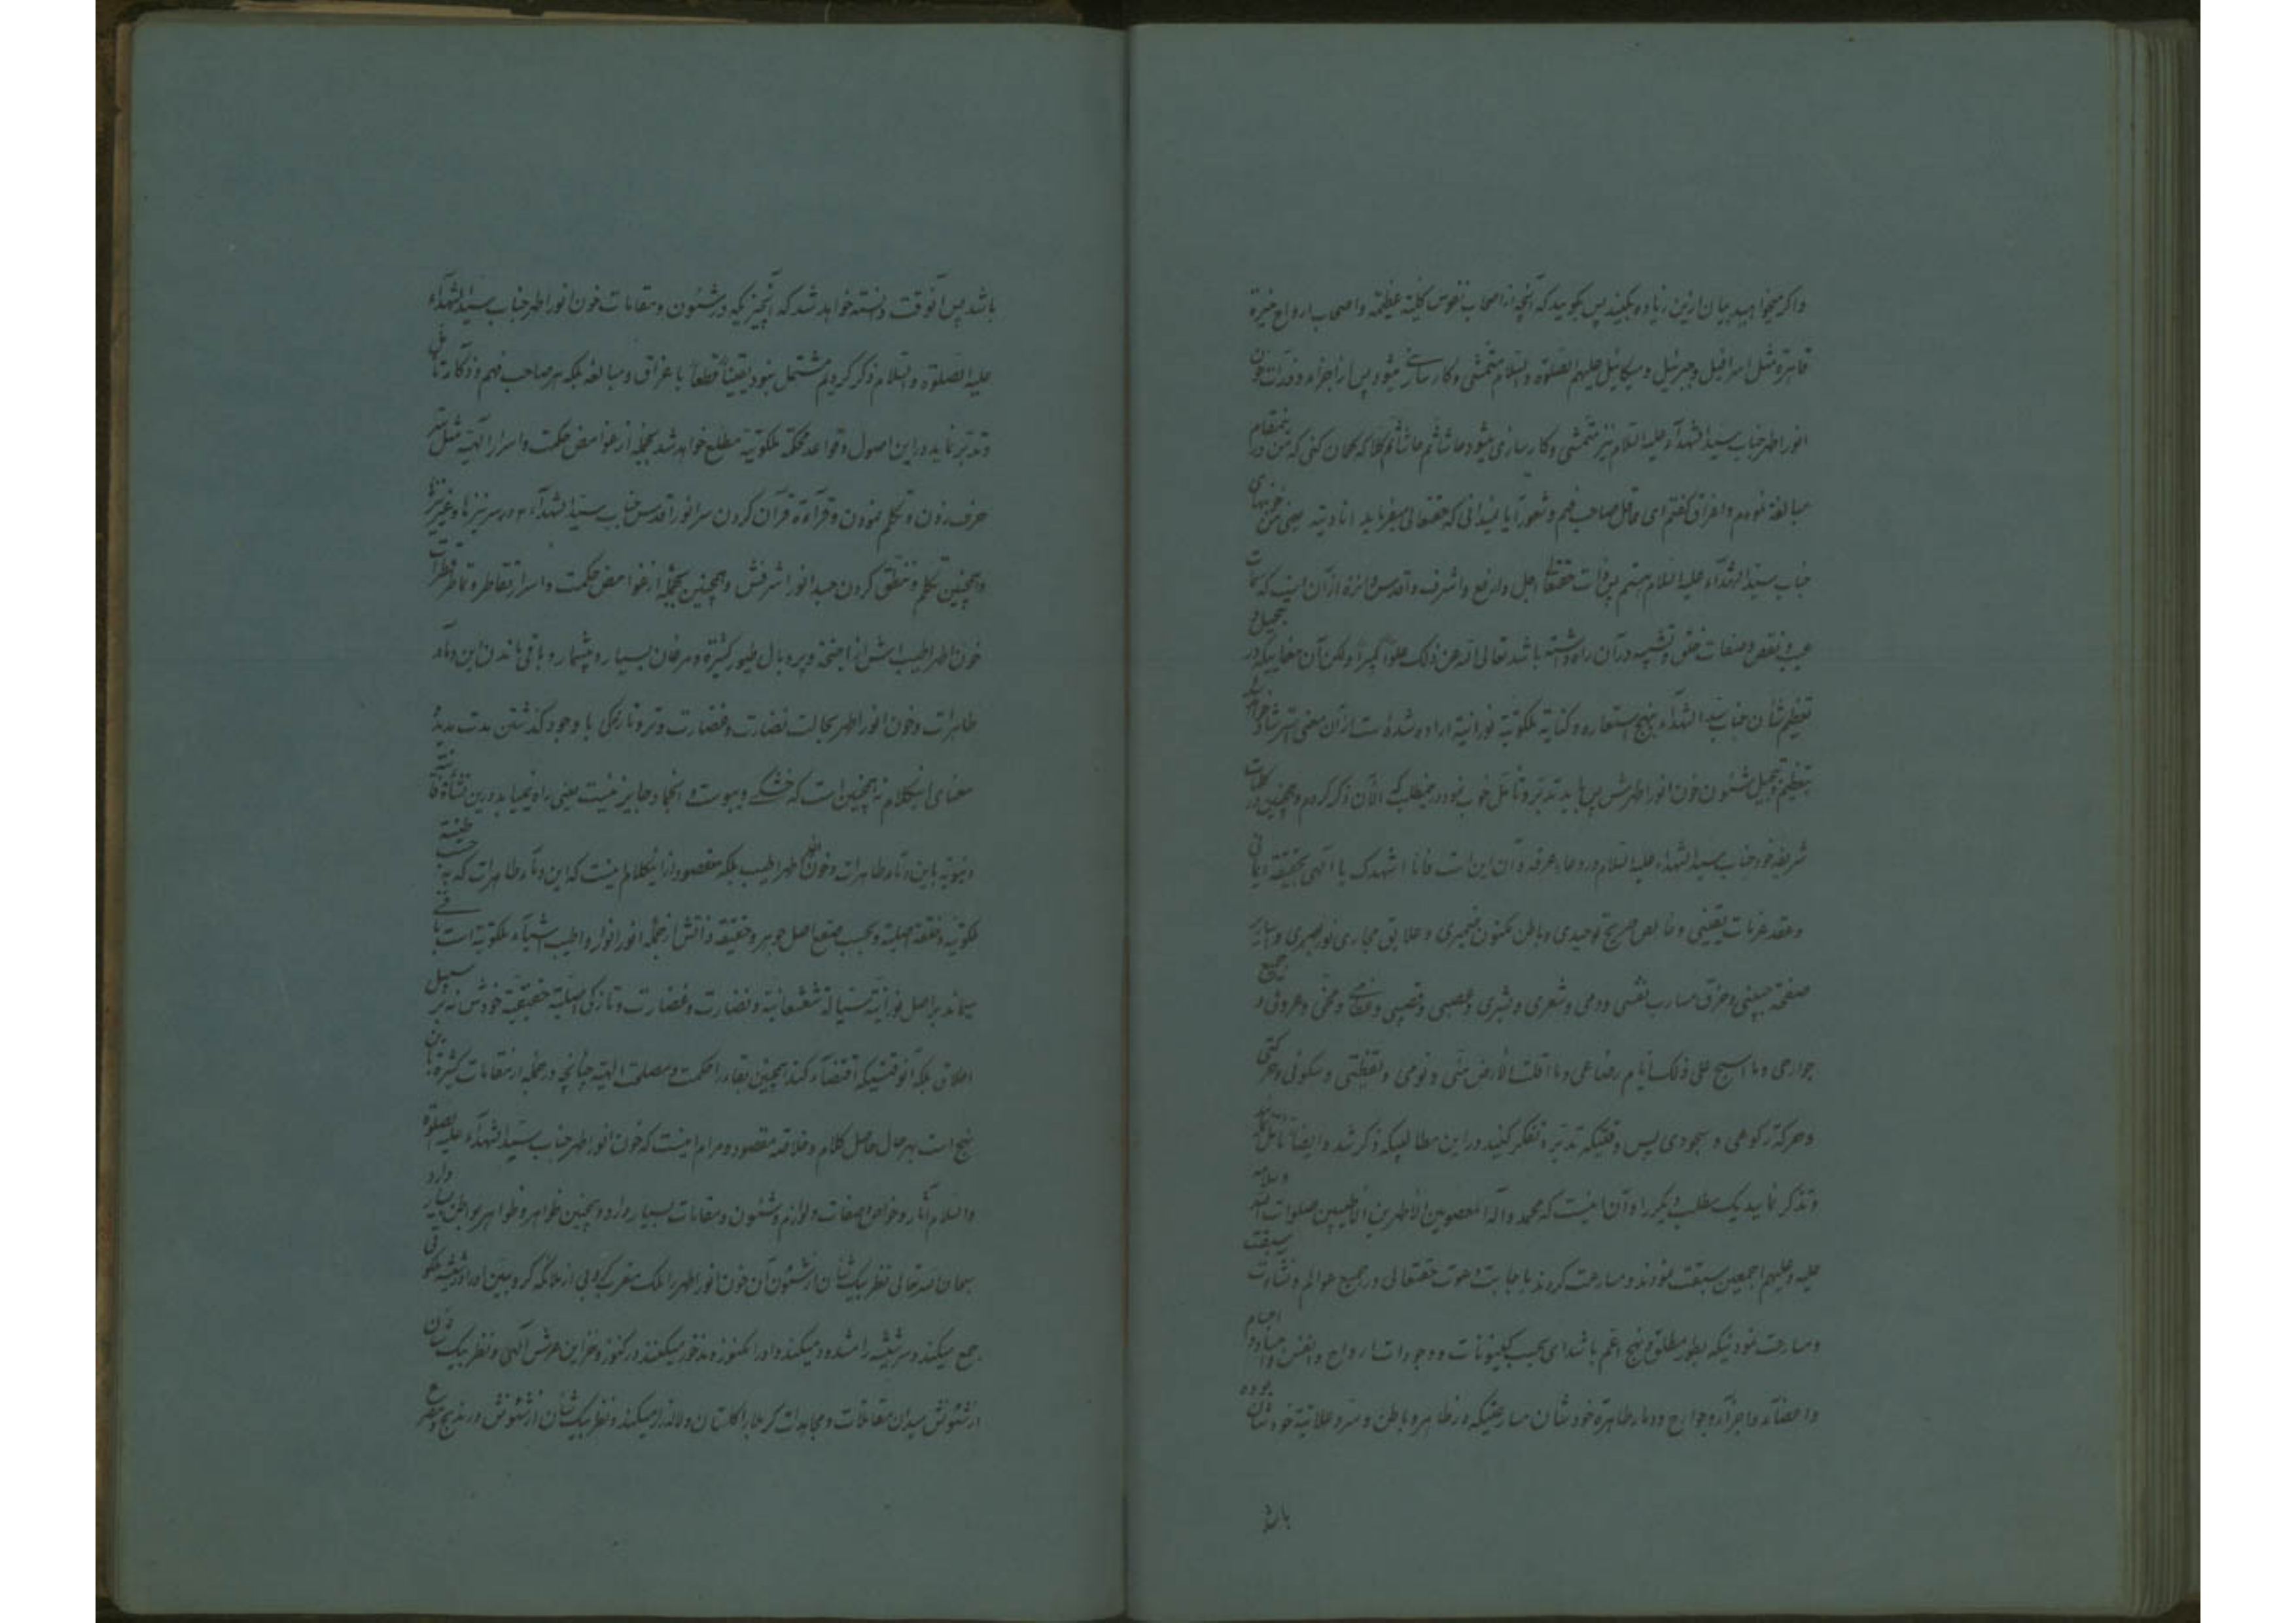 واکر میخواهید بیان ازین زیاده بکنید پس بکویید که آنچه از اصحاب نفوس کلیة عظیمة واصحاب ارواح
قاهره مثل اسرافیل وجبرئیل ومیکائیل علیهم الصلوة والسلام متمشی وکارسازی میشود پس از اجزاء وذرات خون
انور اطهر جناب سیدالشهدآء علیه السلام نیز متمشی وکارسازی میشود حاشا ثم حاشا ثم کلا که کمان کنی که من درینمقام
مبالغه نمودم واغراق کفتم ای عاقل صاحب فهم وشعور آیا نمیدانی که حقتعالی میفرماید انا دیته یعنی من خونبهای
جناب سیدالشهدآء علیه السلام هستم پس ذات حقتعالی اجل وارفع واشرف واقدس وانزه از آن است که سمات
عیب ونقص وصفات خلق وتشبیه در آن راه داشته باشد تعالی الله عن ذلک علوا کبیرا ولکن آن معانیکه در تجمیل و
تعظیم شأن جناب سیدالشهدآء بنهج استعاره وکنایة ملکوتیة نورانیة اراده شده است از آن معنی
تعظیم وتجمیل شئون خون انور اطهرش پس باید تدبر وتأمل خوب نمود در مطلبیکه الآن ذکر کردم وهمچنین در کلمات
شریفه خود جناب سیدالشهداء علیه السلام در دعاء عرفه وآن این است فانا اشهدک یا الهی بحقیقة ایمانی
وعقد عزمات یقینی وخالص صریح توحیدی وباطن مکنون ضمیری وعلایق مجاری نور بصری واساریر
صفحة جبینی وخرق مسارب نفسی ودمی وشعری وبشری وعصبی وقصبی وعظامی ومخی وعروقی وجمیع
جوارحی وما انتسج علی ذلک ایام رضاعی وما اقلت الأرض منی ونومی ویقظتی وسکونی وحرکتی
وحرکة رکوعی وسجودی پس وقتیکه تدبر وتفکر کنید در این مطالبیکه ذکر شد وایضا تأمل
وتذکر نمایید یک مطلب دیکر را وآن اینست که محمد وآله المعصومین الأطهرین الأطیبین صلوات الله وسلامه
علیه وعلیهم اجمعین سبقت نمودند ومسارعت کردند باجابت دعوت حقتعالی در جمیع عوالم ونشآت
ومسارعت نمودنیکه بطور مطلق ونهج اعم باشد ای بحسب کینونات ووجودات ارواح وانفس واجسام واجساد
واعضآء واجزآء وجوارح ودماء طاهرة خودشان مسارعتیکه در ظاهر وباطن وسر وعلانیة خودشان بوده
باشد پس آنوقت دانسته خواهد شد که آنچیزیکه در شئون ومقامات خون انور اطهر جناب سیدالشهدآء
علیه الصلوة والسلام ذکر کردیم مشتمل نبود یقینا قطعا باغراق ومبالغه بلکه هر صاحب فهم وذکا که تأنی
وتدبر نماید در این اصول وقواعد محکمة ملکوتیة مطلع خواهد شد بجمله از غوامض حکمت واسرار الهیة مثل سر
حرف زدن وتکلم نمودن وقرآءة قرآن کردن سر انور اقدس جناب سیدالشهدآء ع در سر نیزها وغیر نیزها
وهمچنین تکلم وتنطق کردن جسد انور اشرفش وهمچنین بجمله از غوامض حکمت واسرار تقاطر وتماطر قطرات
خون اطهر اطیب اش از اجنحه وپر وبال طیور کثیرة ومرغان بسیار وبیشمار وباقی ماندن این دمآء
طاهرات وخون انور اطهر بحالت نضارت وغضارت وتر وتازکی با وجود کذشتن مدت مدیده
معنای اینکلام نه همچنین است که خشکی ویبوست وانجماد جایز نیست یعنی راه نمییابد درین نشأة فانیة
دنیویة باین دمآء طاهرات وخون اطهر اطیب بلکه مقصود از اینکلام اینست که این دمآء طاهرات که بحسب طینة
ملکوتیة وخلقة اصلیة وبحسب صقع اصل جوهر وحقیقة ذاتش از جمله انور انوار واطیب اشیآء ملکوتیة است باقی
میماند بر اصل نورانیة سیالة شعشعانیة ونضارت وغضارت وتازکی اصلیة حقیقیة خودش نه بر سبیل
اطلاق بلکه آنوقتیکه اقتضآء کند همچنین بقاء را حکمت ومصلحت الهیة چنانچه در جمله از مقامات کثیره باین
نهج است بهر حال حاصل کلام وخلاصه مقصود ومرام اینست که خون انور اطهر جناب سیدالشهدآء علیه الصلوة
والسلام آثار وخواص وصفات ولوازم وشئون ومقامات بسیار دارد وهمچنین ظواهر وظواهر وبواطن بسیار دارد
سبحان الله تعالی نظر بیک شأن از شئون آن خون انور اطهر را ملک مقرب کروبی از ملائکه کروبیین اورا در شیشه
جمع میکند وسر شیشه را مشدود میکند واورا کنوز ومذخور میکنند در کنوز وخزاین عرش الهی ونظر بیک شان
از شئونش میدان مقاتلات ومجاهدات کربلا را کلستان ولاله زار میکند ونظر بیک شأن از شئونش در مذبح
باشد